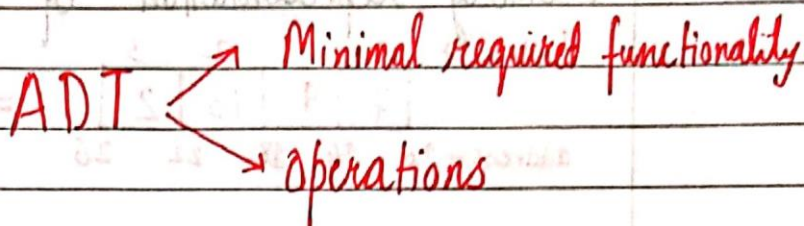 Minimal required functionality
ADT
Operations